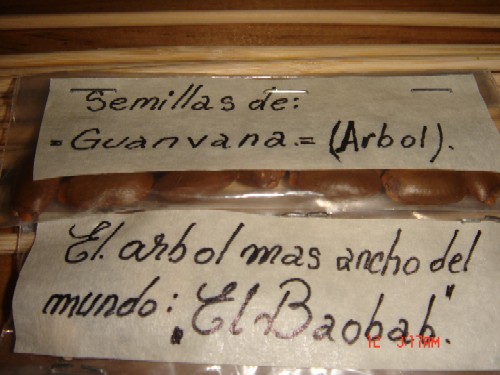 Semillas de:
= Guanvana. = (Arbol).
El arbol mas ancho del
mundo: "El Baobab."